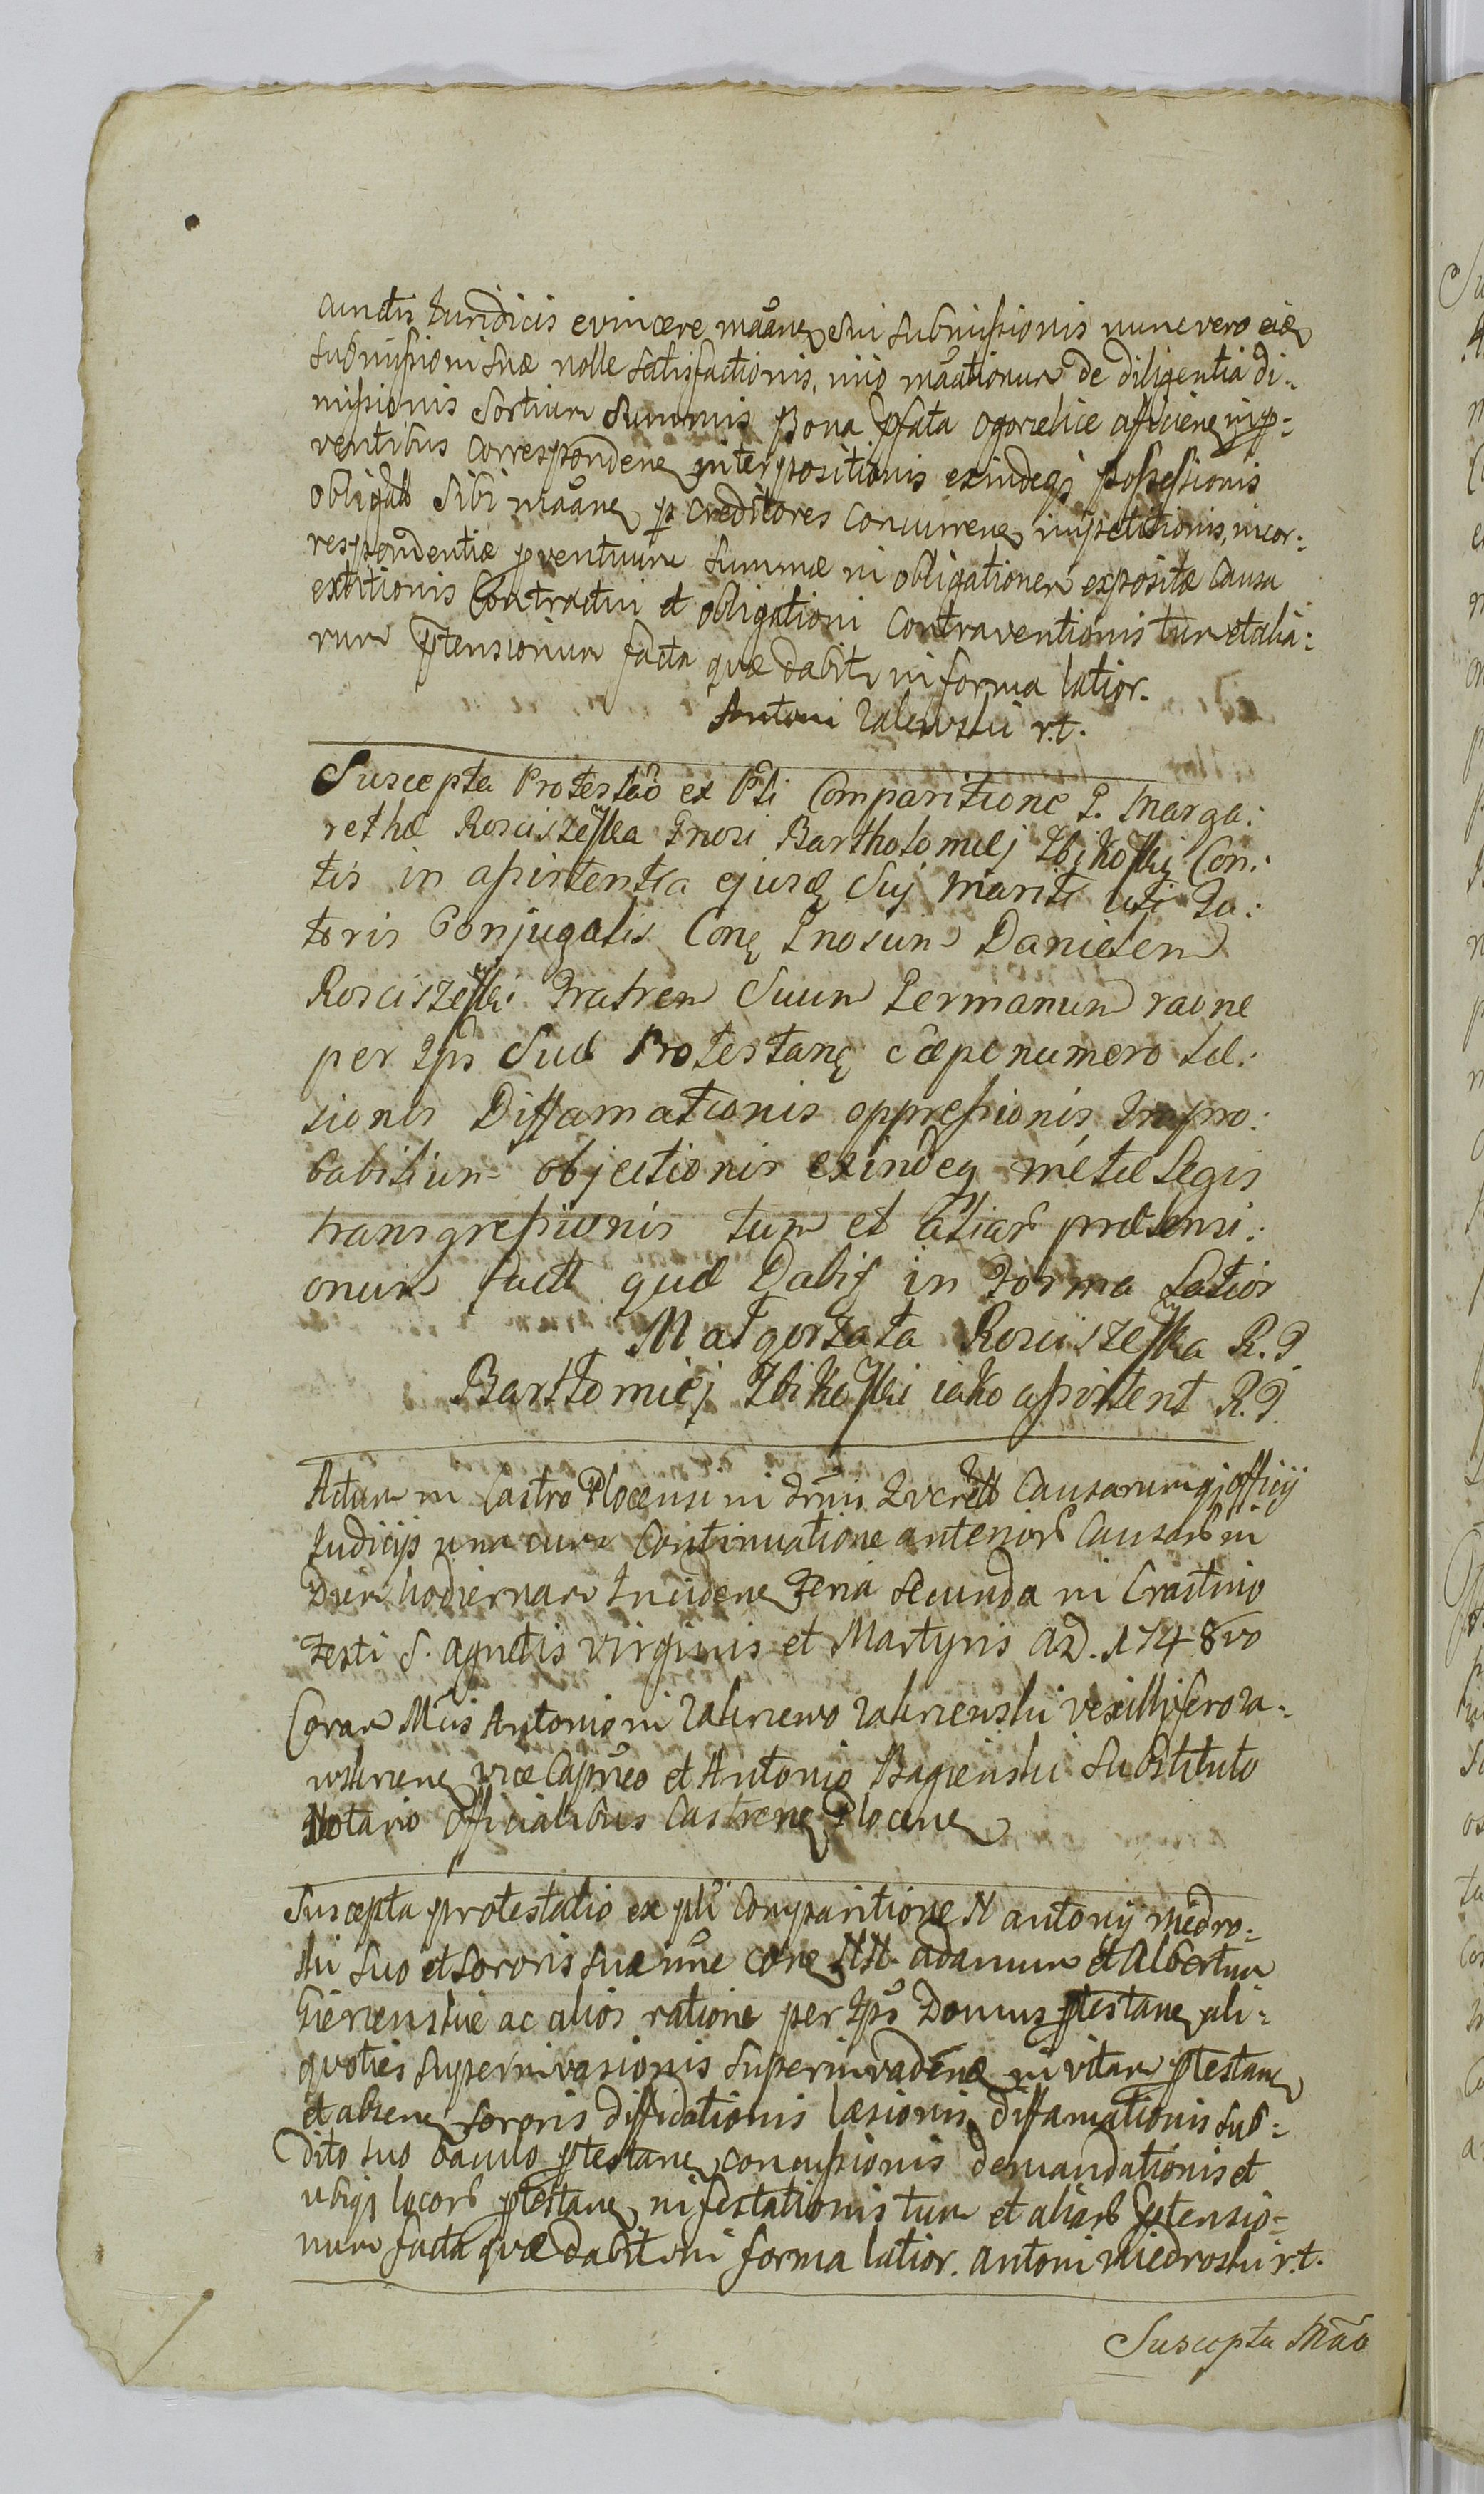 cunctis Juridicis evincere mãane sui submissionis nunc vero eid
submissioni suæ nolle satisfactionis, imo mãationum de diligentia di=
missionis sortium summis Bona pfata Ogorzelice afficiene in p=
ventibus correspondene interpositionis exindeq possessionis
obligatt sibi mãane p Creditores concurrene impetitionis, incor=
respondentiæ pventuum summæ in obligationem expositæ Causa
extitionis Contractui et obligationi Contraventionis tum et alia=
rum ptensionum facta quæ dabitr in forma latior.
Antoni Zalewski r.t.
Suscepta Protestão ex Pli Comparitione G. Marga:
rethæ Rosciszewska Gnosi Bartholomæj Zbikowski Con:
tis in assistentia ejusd Suj Mariti uti Tu:
toris Conjugalis Cong Gnosum Danielem
Rosciszewski Fratrem Suum Germanum raone
per Ips Suæ Protestang cæpe numero Læ:
sionis Diffamationis oppressionis Impro:
babilium objectionis exindeq metæ Legis
transgressionis tum et aliar prætensi:
onum fact quæ Dabitr in Forma Latior
Małgorzata Rosciszewska R.P.
Bartłomiej Zbikowski iako assistent R.P.
Actum in Castro Plocensi in Trmis Querell Causarumq Officij
Judicijs una cum Continuatione anterior Causar in
Diem hodiernam Incidene Feria Secunda in Crastino
Festi S. Agnetis Virginis et Martyris A.D. 1748vo
Coram Mcis Antonio in Zakrzewo Zakrzenski Vexillifero Za=
wskrzene vice Capneo et Antonio Bagienski Substituto
Notario Officialibus Castrene Plocene
Suscepta protestatio ex pli Comparitione N Antonij Miedro=
ski suo et sororis suæ nne cone NN. Adamum et Albertum
Gierzenskie ac alios ratione per Ips Domus ptestane ali=
quoties superinvasionis superinvadene in vitam ptestane
et absene sororis diffidationis læsionis diffamationis sub=
dito suo ptestane concussionis demandationis et
ubiq locor ptestane infestationis tum et aliar ptensio=
num facta quæ dabitr in forma latior. Antoni Miedroski r.t.
Suscepta Mão